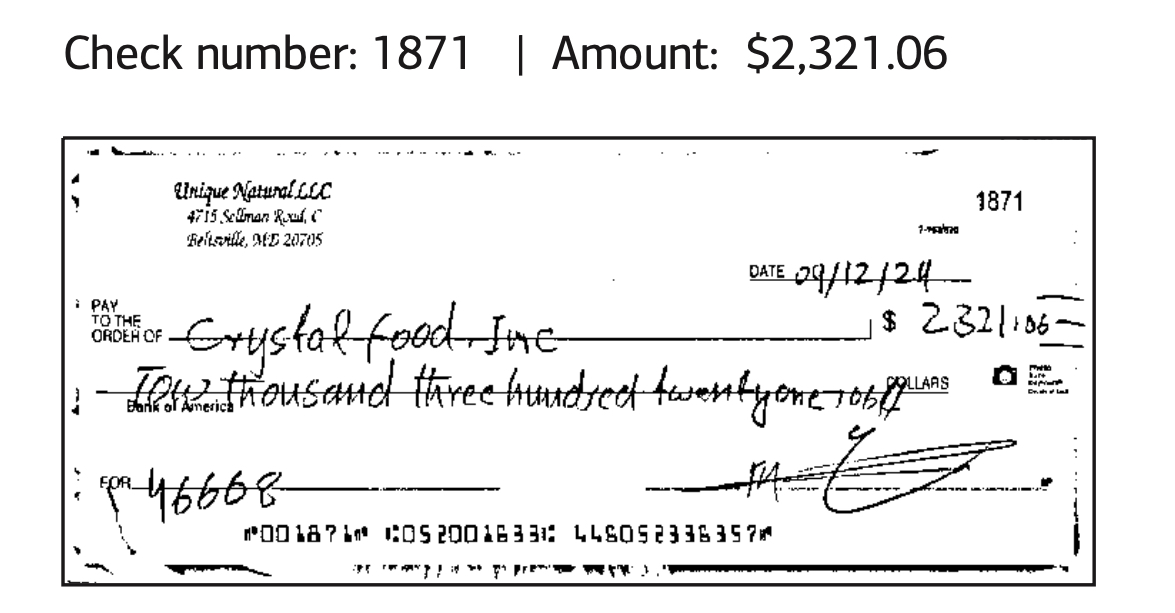 Check number: 1871 | Amount: $2,321.06
Unique Natural LLC
4715 Sellman Road, C
Beltsville, MD 20705
1871
DATE 09/12/24
PAY
TO THE
ORDER OF Crystal food, Inc $ 2321.06
Tow thousand three hundred twentyone, DOLLARS
Bank of America
FOR 46668
⑈001871⑈ ⑆052001633⑆ 446052336357⑈